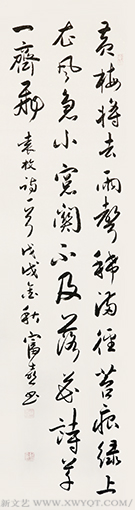 黄梅将去雨声稀满径苔痕绿上
衣风急小窗关不及落花诗草
一齐飞
袁枚诗一首戊戌金秋富春书
新文艺 WWW.XWYQT.COM